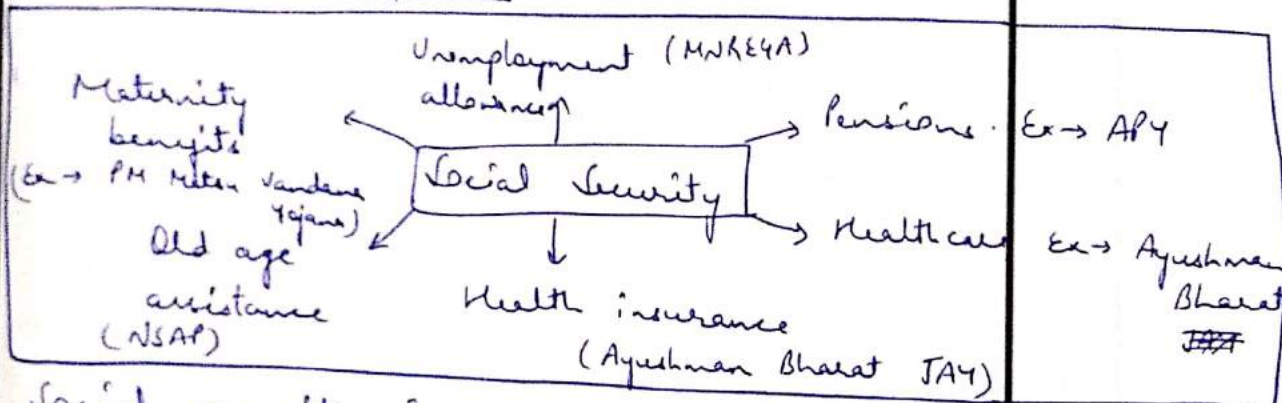 Unemployment (MNREGA)
allowance
Maternity
benefits
(Ex → PM Matru Vandana
Yojana)
Pensions. Ex → APY
Social Security
Old age
assistance
(NSAP)
Health insurance
(Ayushman Bharat JAY)
Healthcare Ex → Ayushman
Bharat